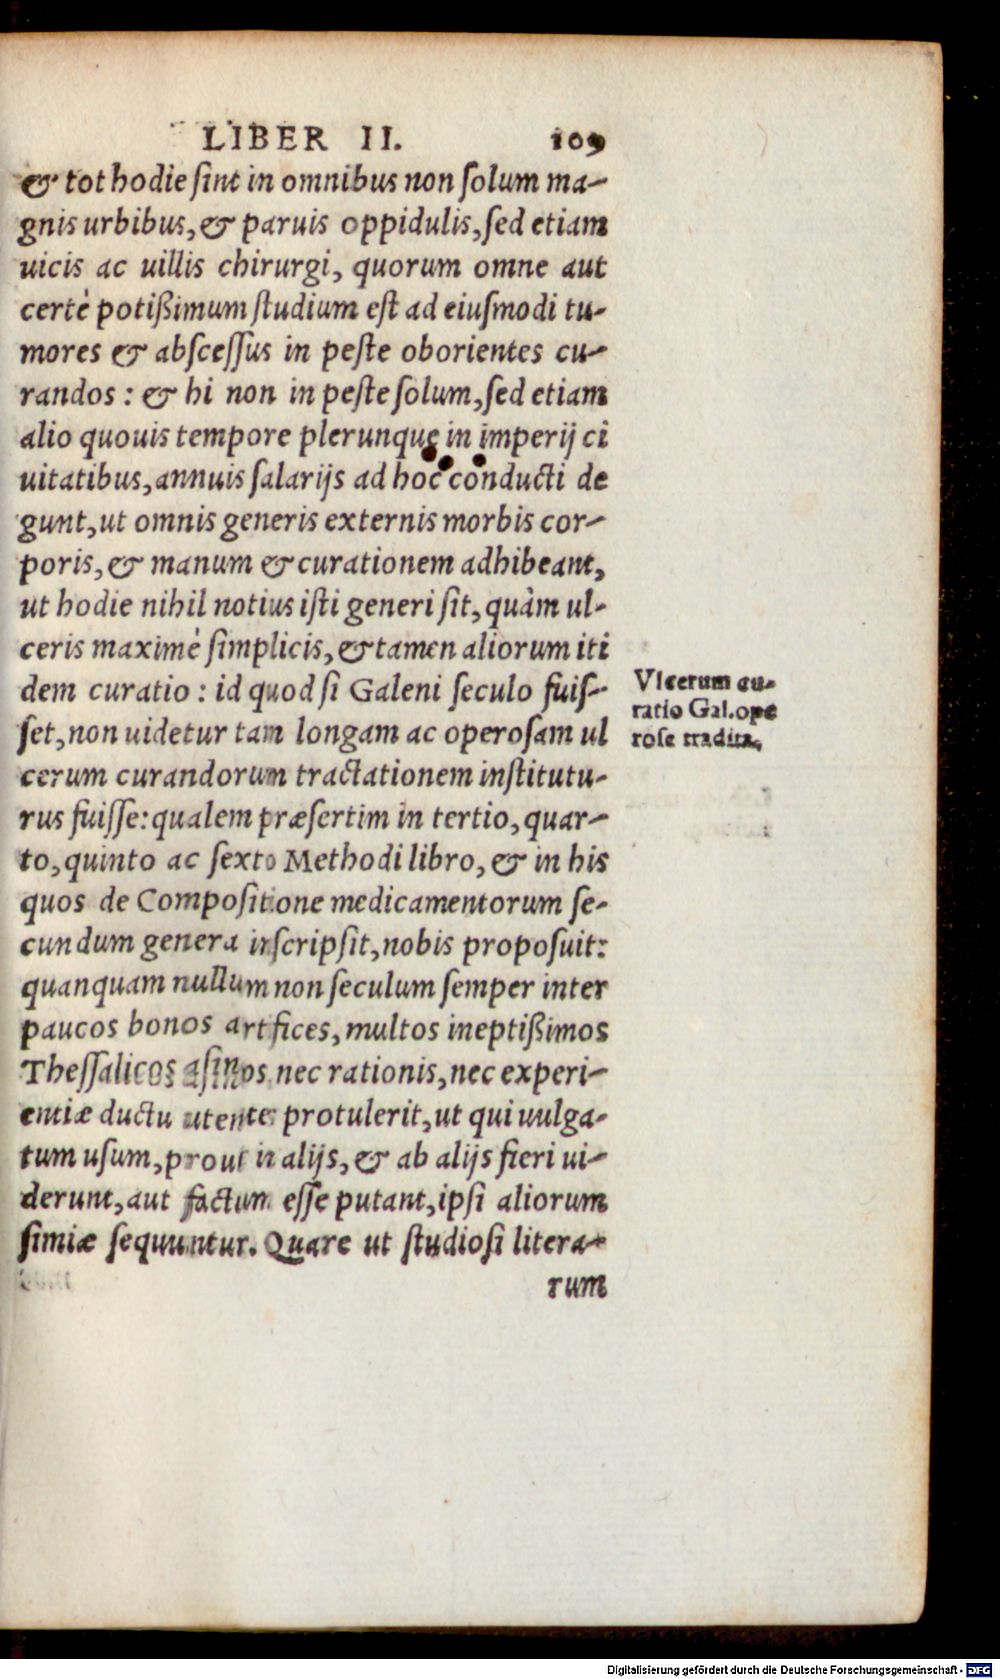 LIBER II. 109
& tot hodie sint in omnibus non solum ma-
gnis urbibus, & paruis oppidulis, sed etiam
uicis ac uillis chirurgi, quorum omne aut
certè potißimum studium est ad eiusmodi tu-
mores & abscessus in peste oborientes cu-
randos: & hi non in peste solum, sed etiam
alio quouis tempore plerunque in imperij ci
uitatibus, annuis salarijs ad hoc conducti de
gunt, ut omnis generis externis morbis cor-
poris, & manum & curationem adhibeant,
ut hodie nihil notius isti generi sit, quàm ul-
ceris maximè simplicis, & tamen aliorum iti
dem curatio: id quod si Galeni seculo fuis-
set, non uidetur tam longam ac operosam ul
cerum curandorum tractationem institutu-
rus fuisse: qualem præsertim in tertio, quar-
to, quinto ac sexto Methodi libro, & in his
quos de Compositione medicamentorum se-
cundum genera inscripsit, nobis proposuit:
quanquam nullum non seculum semper inter
paucos bonos artifices, multos ineptißimos
Thessalicos asinos, nec rationis, nec experi-
entiæ ductu utentes protulerit, ut qui uulga-
tum usum, prout in alijs, & ab alijs fieri ui-
derunt, aut factum esse putant, ipsi aliorum
simiæ sequuntur. Quare ut studiosi litera-
rum
Vlcerum cu-
ratio Gal. ope
rose tradita.
Digitalisierung gefördert durch die Deutsche Forschungsgemeinschaft - DFG